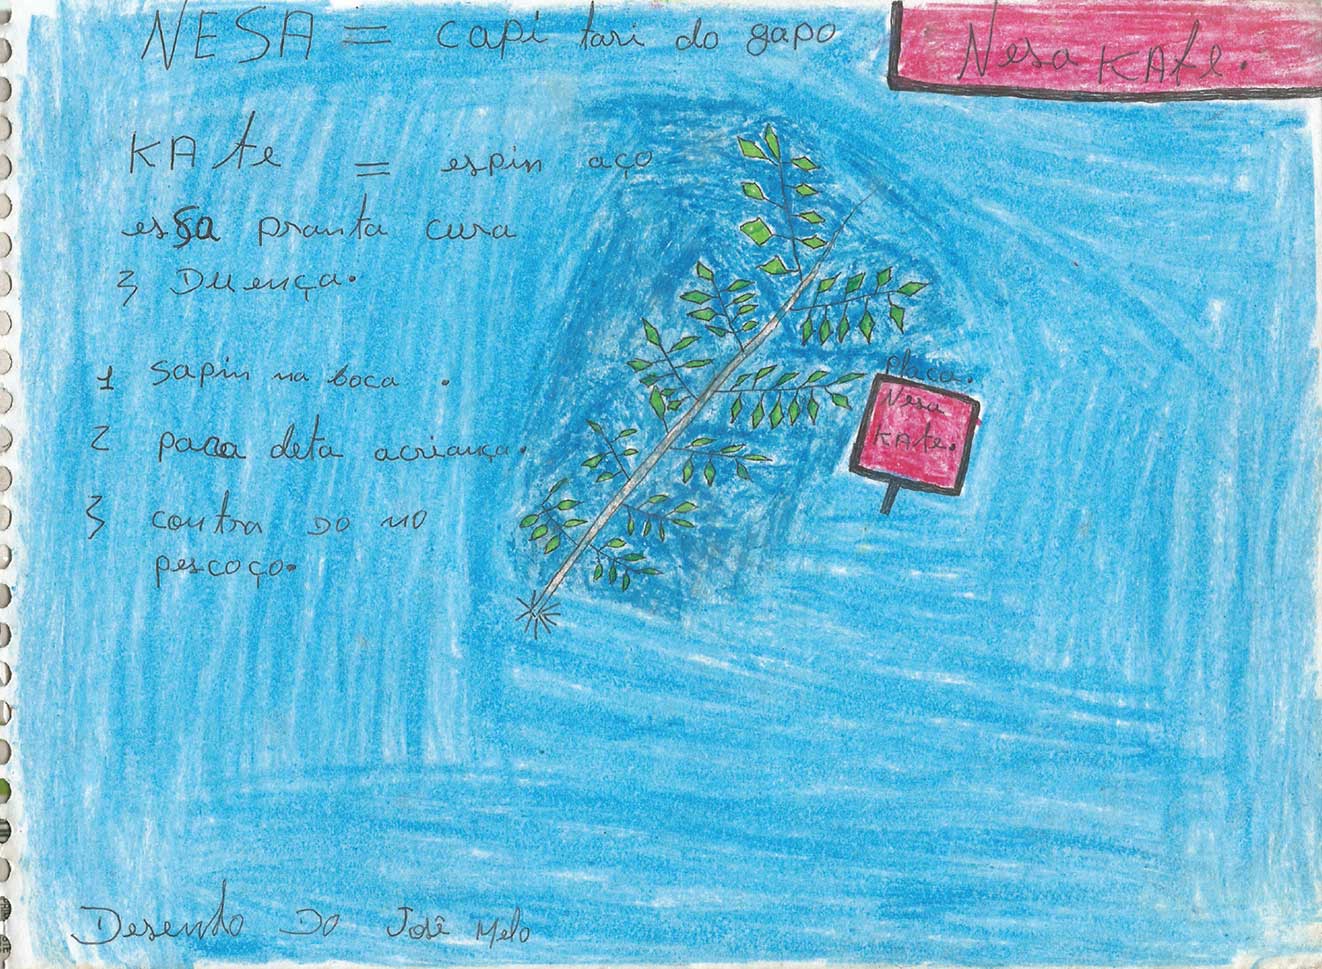 NESA = capi tari do gapo
Nesa KAte.
KAte = espin aço
essa pranta cura
3 Duença.
1 sapin na boca .
2 para deta acriança.
3 contra do no
pescoço.
Placa.
Nesa
KAte.
Desenho Do José Melo